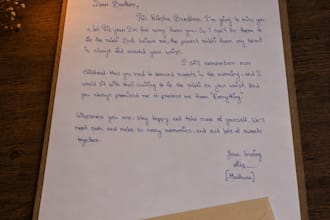 Dear Brother,
This Raksha Bandhan I'm going to miss you
a lot this year. I'm far away from you. So I can't be there to
tie the rakhi. But believe me, the purest rakhi from my heart
is always tied around your wrist.
I still remember our
childhood that you used to demand sweets in the morning, and I
would sit with that waiting to tie the rakhi on your wrist. And
you always promised me to protect me from "Everything".
Wherever you are, stay happy and take care of yourself. We'll
meet soon and make so many memories, and eat lots of sweets
together.
Your loving
sis
[Madhuri]